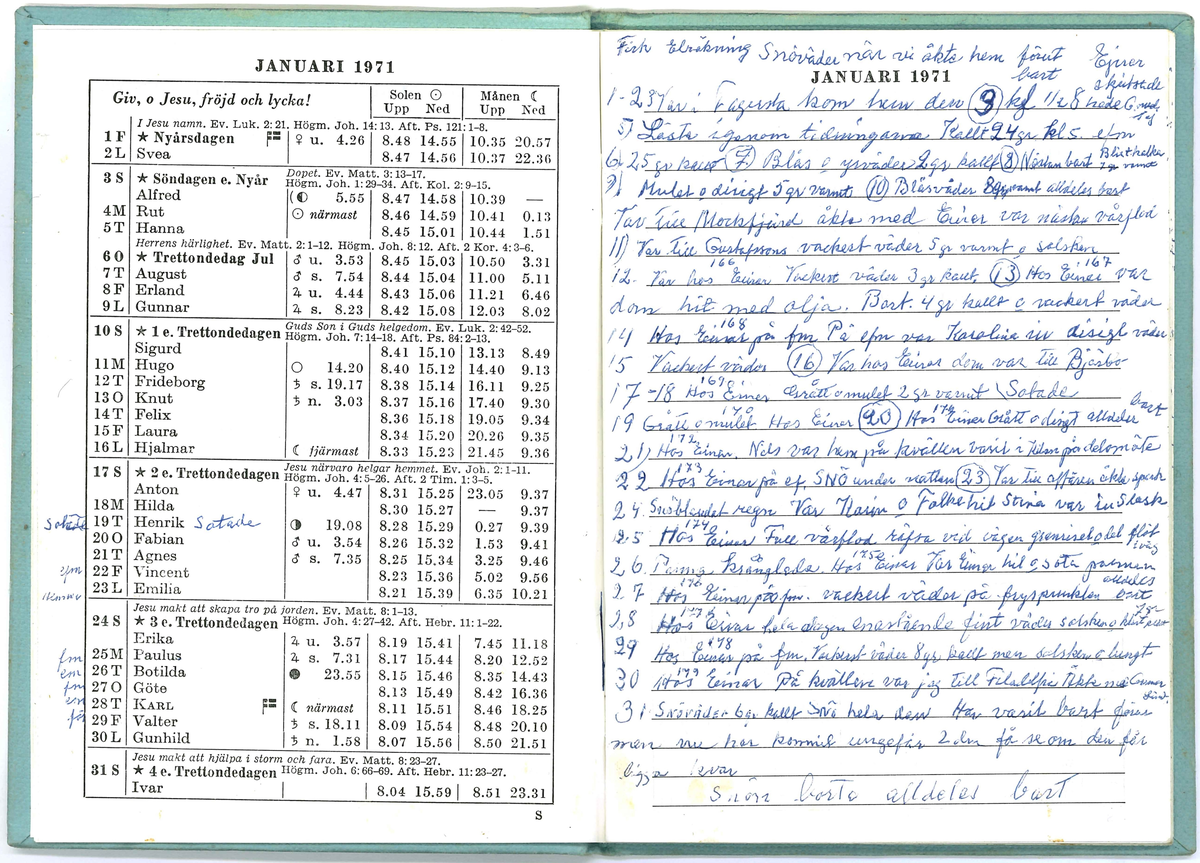 JANUARI 1971
Giv, o Jesu, fröjd och lycka!
Solen ☉ Upp Ned
Månen ☾ Upp Ned
I Jesu namn. Ev. Luk. 2: 21. Högm. Joh. 14: 13. Aft. Ps. 121: 1-8.
1 F ★ Nyårsdagen ♀ u. 4.26 8.48 14.55 10.35 20.57
2 L Svea 8.47 14.56 10.37 22.36
3 S ★ Söndagen e. Nyår Dopet. Ev. Matt. 3: 13-17.
Högm. Joh. 1: 29-34. Aft. Kol. 2: 9-15.
Alfred 5.55 8.47 14.58 10.39 —
4 M Rut ☉ närmast 8.46 14.59 10.41 0.13
5 T Hanna 8.45 15.01 10.44 1.51
Herrens härlighet. Ev. Matt. 2: 1-12. Högm. Joh. 8: 12. Aft. 2 Kor. 4: 3-6.
6 O ★ Trettondedag Jul ♂ u. 3.53 8.45 15.03 10.50 3.31
7 T August ♂ s. 7.54 8.44 15.04 11.00 5.11
8 F Erland ♃ u. 4.44 8.43 15.06 11.21 6.46
9 L Gunnar ♃ s. 8.23 8.42 15.08 12.03 8.02
10 S ★ 1 e. Trettondedagen Guds Son i Guds helgedom. Ev. Luk. 2: 42-52.
Högm. Joh. 7: 14-18. Aft. Ps. 84: 2-13.
Sigurd 8.41 15.10 13.13 8.49
11 M Hugo ○ 14.20 8.40 15.12 14.40 9.13
12 T Frideborg ♄ s. 19.17 8.38 15.14 16.11 9.25
13 O Knut ♄ n. 3.03 8.37 15.16 17.40 9.30
14 T Felix 8.36 15.18 19.05 9.34
15 F Laura 8.34 15.20 20.26 9.35
16 L Hjalmar ☾ fjärmast 8.33 15.23 21.45 9.36
17 S ★ 2 e. Trettondedagen Jesu närvaro helgar hemmet. Ev. Joh. 2: 1-11.
Högm. Joh. 4: 5-26. Aft. 2 Tim. 1: 3-5.
Anton ♀ u. 4.47 8.31 15.25 23.05 9.37
18 M Hilda 8.30 15.27 — 9.37
Sotade 19 T Henrik Sotade ◑ 19.08 8.28 15.29 0.27 9.39
20 O Fabian ♂ u. 3.54 8.26 15.32 1.53 9.41
21 T Agnes ♂ s. 7.35 8.25 15.34 3.25 9.46
efm 22 F Vincent 8.23 15.36 5.02 9.56
23 L Emilia 8.21 15.39 6.35 10.21
Jesu makt att skapa tro på jorden. Ev. Matt. 8: 1-13.
24 S ★ 3 e. Trettondedagen Högm. Joh. 4: 27-42. Aft. Hebr. 11: 1-22.
Erika ♃ u. 3.57 8.19 15.41 7.45 11.18
fm 25 M Paulus ♃ s. 7.31 8.17 15.44 8.20 12.52
em 26 T Botilda ● 23.55 8.15 15.46 8.35 14.43
fm 27 O Göte 8.13 15.49 8.42 16.36
em 28 T KARL ☾ närmast 8.11 15.51 8.46 18.25
29 F Valter ♄ s. 18.11 8.09 15.54 8.48 20.10
30 L Gunhild ♄ n. 1.58 8.07 15.56 8.50 21.51
Jesu makt att hjälpa i storm och fara. Ev. Matt. 8: 23-27.
31 S ★ 4 e. Trettondedagen Högm. Joh. 6: 66-69. Aft. Hebr. 11: 23-27.
Ivar 8.04 15.59 8.51 23.31
S
Elräkning Snöväder när vi åkte hem förut bart
JANUARI 1971
Einar skjutsade
1-2 3 Var i Fagersta kom hem den 3 kl 1/2 8 hade
5) Läste igenom tidningarna Kallt 24 gr kl 5 efm
6. 25 gr kallt 7 Blås o yrväder 2 gr kallt 8 Nästan bart Blixthalka
9) Mulet o disigt 5 gr varmt 10 Blåsväder 8 gr varmt alldeles bart
Var till Mockfjärd åkte med Einar var nästan vårflod
11) Var till Gustafssons vackert väder 5 gr varmt o solsken
12. Var hos 166 Einar Vackert väder 3 gr kallt. 13 Hos Einar 167 var
dom hit med olja. Bart. 4 gr kallt o vackert väder
14 Hos Einar 168 på fm På efm var Karolina in disigt väder
15 Vackert väder 16 Var hos Einar dom var till Bjursbo
17-18 Hos 169 Einar Grått o mulet 2 gr varmt Sotade
19 Grått o mulet. Hos 170 Einar 20 Hos 171 Einar Grått o disigt alldeles bart
21) Hos 172 Einar. Nels var hem på kvällen varit i Holm på delomöte
22 Hos 173 Einar på ef. SNÖ under natten 23 Var till affären åkte spark
24. Snöblandat regn Var Karin o Folke hit Stina var in Slask
25 Hos 174 Einar Full vårflod räfsa vid vägen gremiset o det flöt iväg
26. Panna krånglade. Hos 175 Einar Var Einar hit o sota pannan
27 Hos 176 Einar på fm. vackert väder på fryspunkten alldeles bart
28 Hos 177 Einar hela dagen enastående fint väder solsken
29 Hos 178 Einar på fm. Vackert väder 8 gr kallt men solsken o lungt
30 Hos 179 Einar På kvällen var jag till Filadelfia Åkte med Gunnar
31 Snöväder 6 gr kallt SNÖ hela den Har varit bart förut
men nu har kommit ungefär 2 dm få se om den får
ligga kvar
Snön borta alldeles bart